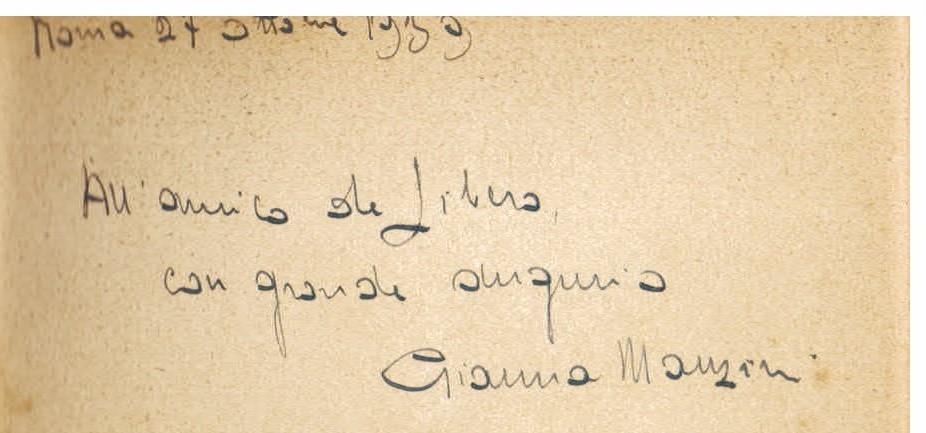 Roma 27 ottobre 1939
All'amico de Libero,
con grande augurio
Gianna Manzini